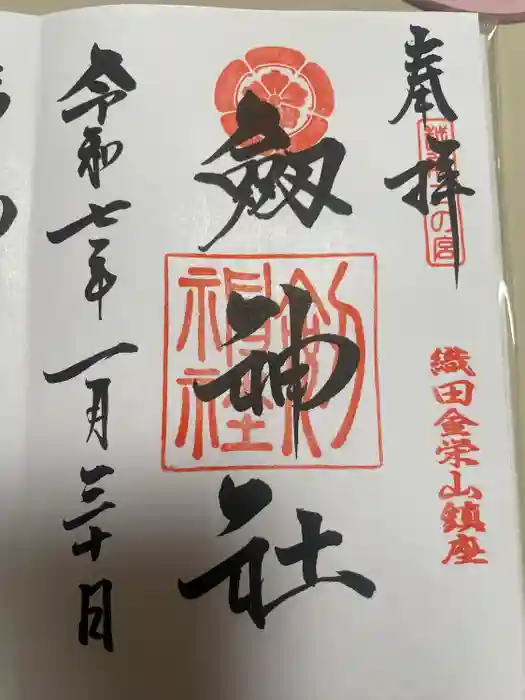 奉拝
の宮
織田金栄山鎮座
劔神社
劔神社
令和七年一月三十日